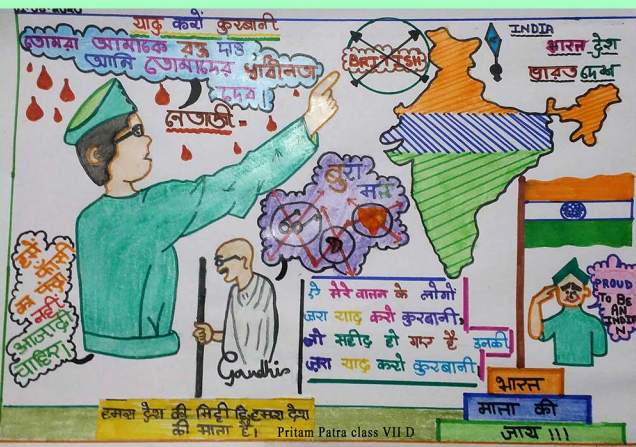 याद करों कुरबानी
তোমরা আমাকে রক্ত দাও
আমি তোমাদের স্বাধীনতা
দেব
নেতাজী -
BRITISH
INDIA
भारत देश
ভারত দেশ
बुरा
मत
हमें
का
नहीं
आजादी
चाहिए
Gandhi
ऐ मेरे वातन के लोगों
जरा याद करो कुरबानी,
जो सहीद हो गए है उनकी
ज़रा याद करो कुरबानी
PROUD
TO BE
AN
INDIA
N
भारत
माता की
जाय !!!
हमारा देश की मिट्टी हि हमारा देश
की माता है।
Pritam Patra class VII D